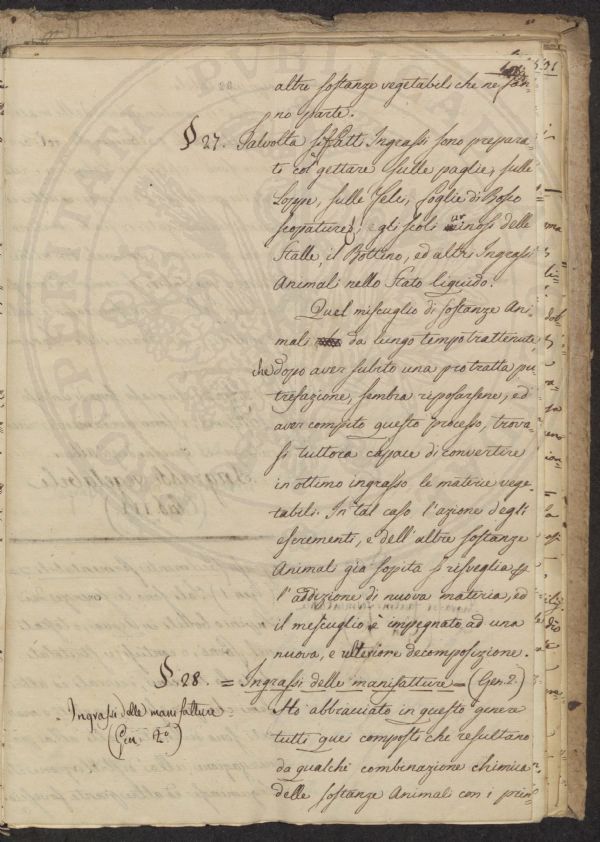 591
altre sostanze vegetabili che ne fan=
no parte.
§ 27. Talvolta sifatti Ingrassi sono prepara=
ti col gettare sulle paglie, sulle
Loppe, sulle Felci, foglie di Bosco
scopature, gli scoli urinosi delle
Stalle, il Bottino, ed altri Ingrassi
Animali nello stato liquido.
Quel miscuglio di sostanze Ani=
mali da lungo tempo trattenute,
che dopo aver subito una protratta pu
trefazione, sembra riposarsene, ed
aver compito questo processo, trova
si tuttora capace di convertire
in ottimo ingrasso le materie vege=
tabili. In tal caso l'azione degli
escrementi, e dell'altre sostanze
Animali già sopita si risveglia
l'addizione di nuova materia, ed
il mescuglio è impegnato ad una
nuova, e ulteriore decomposizione.
§ 28. = Ingrassi delle manifatture = (Gen. 2.)
Ingrassi delle manifatture
(Gen 2°)
Ho abbracciato in questo genere
tutti quei composti che resultano
da qualche combinazione chimica
delle sostanze Animali con i prin=